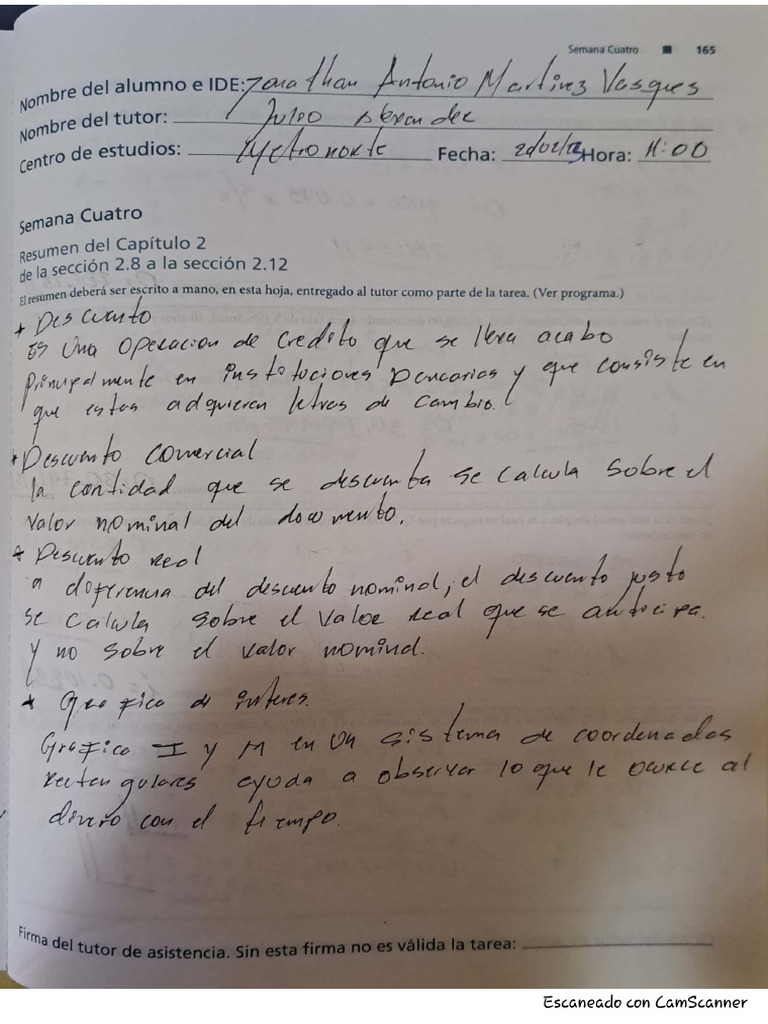 Semana Cuatro ■ 165
Nombre del alumno e IDE: Jonathan Antonio Martinez Vasques
Nombre del tutor: Julio Alexander
Centro de estudios: Metronorte Fecha: Hora: 11:00
Semana Cuatro
Resumen del Capítulo 2
de la sección 2.8 a la sección 2.12
El resumen deberá ser escrito a mano, en esta hoja, entregado al tutor como parte de la tarea. (Ver programa.)
* Descuento
Es una operacion de credito que se lleva acabo
principalmente en instituciones bancarias y que consiste en
que estas adquieren letras de cambio.
* Descuento comercial
la cantidad que se descuenta se calcula sobre el
valor nominal del documento.
* Descuento real
a diferencia del descuento nominal, el descuento justo
se calcula sobre el valor real que se anticipa.
y no sobre el valor nominal.
* Grafica de interes.
Grafica I y M en un sistema de coordenadas
rectangulares ayuda a observar lo que le ocurre al
dinero con el tiempo.
Firma del tutor de asistencia. Sin esta firma no es válida la tarea:
Escaneado con CamScanner